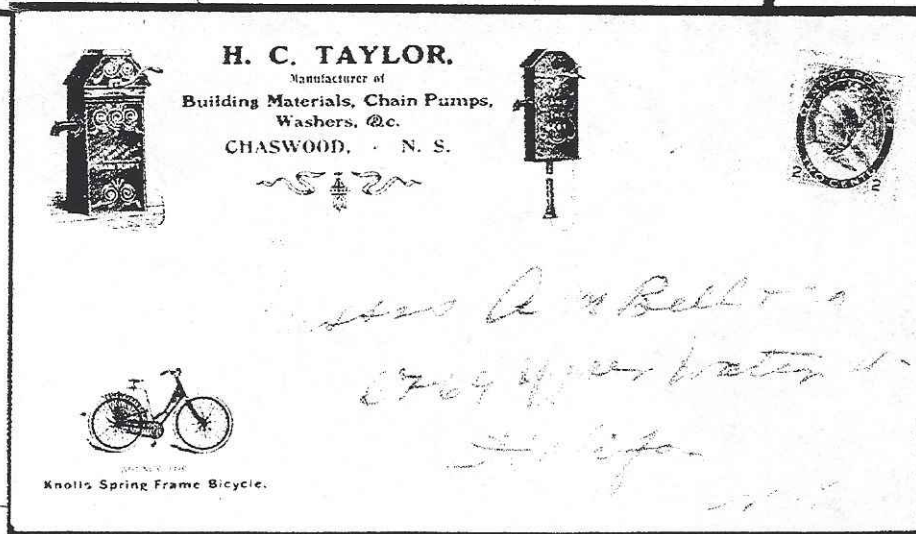 H. C. TAYLOR.
Manufacturer of
Building Materials, Chain Pumps,
Washers, &c.
CHASWOOD, - N. S.
CANADA POSTAGE
TWO CENTS
2 2
A M Bell & Co
Upper Water
Halifax
AGENT FOR
Knolls Spring Frame Bicycle.